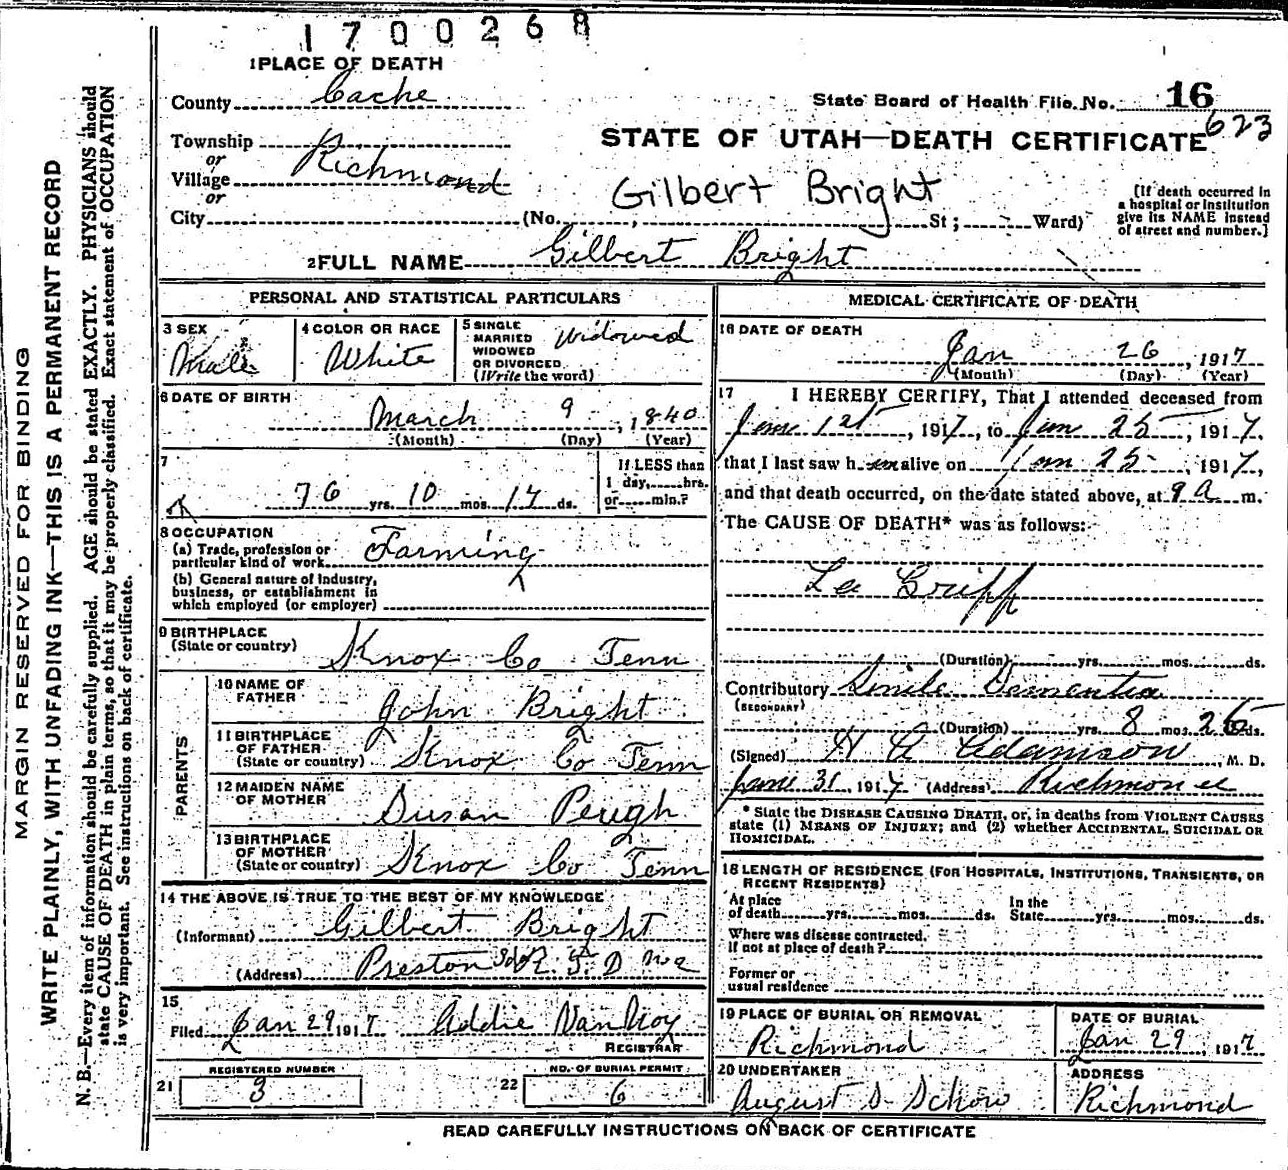 1700268
1 PLACE OF DEATH
County Cache
State Board of Health File No. 16
623
Township
or
Village Richmond
or
City
STATE OF UTAH—DEATH CERTIFICATE
Gilbert Bright
(No. , St; Ward)
(If death occurred in
a hospital or institution
give its NAME instead
of street and number.)
2 FULL NAME Gilbert Bright
PERSONAL AND STATISTICAL PARTICULARS
3 SEX
Male
4 COLOR OR RACE
White
5 SINGLE
MARRIED
WIDOWED
OR DIVORCED
(Write the word)
Widowed
6 DATE OF BIRTH
March 9, 1840
(Month) (Day) (Year)
7
76 yrs. 10 mos. 17 ds.
If LESS than
1 day, hrs.
or min.?
8 OCCUPATION
(a) Trade, profession or
particular kind of work Farming
(b) General nature of industry,
business, or establishment in
which employed (or employer)
9 BIRTHPLACE
(State or country) Knox Co Tenn
PARENTS
10 NAME OF
FATHER John Bright
11 BIRTHPLACE
OF FATHER
(State or country) Knox Co Tenn
12 MAIDEN NAME
OF MOTHER Susan Peugh
13 BIRTHPLACE
OF MOTHER
(State or country) Knox Co Tenn
14 THE ABOVE IS TRUE TO THE BEST OF MY KNOWLEDGE
(Informant) Gilbert Bright
(Address) Preston Ida R. F. D No 2
15
Filed Jan 29 1917 Addie Van Noy
REGISTRAR
REGISTERED NUMBER
21 3
NO. OF BURIAL PERMIT
22 6
MEDICAL CERTIFICATE OF DEATH
16 DATE OF DEATH
Jan 26, 1917
(Month) (Day) (Year)
17 I HEREBY CERTIFY, That I attended deceased from
Jan 1st, 1917, to Jan 25, 1917,
that I last saw h im alive on Jan 25, 1917,
and that death occurred, on the date stated above, at 9 a m.
The CAUSE OF DEATH* was as follows:
La Gripp
(Duration) yrs. mos. ds.
Contributory Senile Dementia
(SECONDARY)
(Duration) yrs. 8 mos. ds.
(Signed) Adamson, M. D.
Jan 31, 1917 (Address) Richmond
* State the DISEASE CAUSING DEATH, or, in deaths from VIOLENT CAUSES
state (1) MEANS OF INJURY; and (2) whether ACCIDENTAL, SUICIDAL OR
HOMICIDAL.
18 LENGTH OF RESIDENCE (FOR HOSPITALS, INSTITUTIONS, TRANSIENTS, OR
RECENT RESIDENTS)
At place
of death yrs. mos. ds.
In the
State yrs. mos. ds.
Where was disease contracted,
if not at place of death?
Former or
usual residence
19 PLACE OF BURIAL OR REMOVAL
Richmond
DATE OF BURIAL
Jan 29, 1917
20 UNDERTAKER
August S Schow
ADDRESS
Richmond
READ CAREFULLY INSTRUCTIONS ON BACK OF CERTIFICATE
MARGIN RESERVED FOR BINDING
WRITE PLAINLY, WITH UNFADING INK—THIS IS A PERMANENT RECORD
N. B.—Every item of information should be carefully supplied. AGE should be stated EXACTLY. PHYSICIANS should
state CAUSE OF DEATH in plain terms, so that it may be properly classified. Exact statement of OCCUPATION
is very important. See instructions on back of certificate.